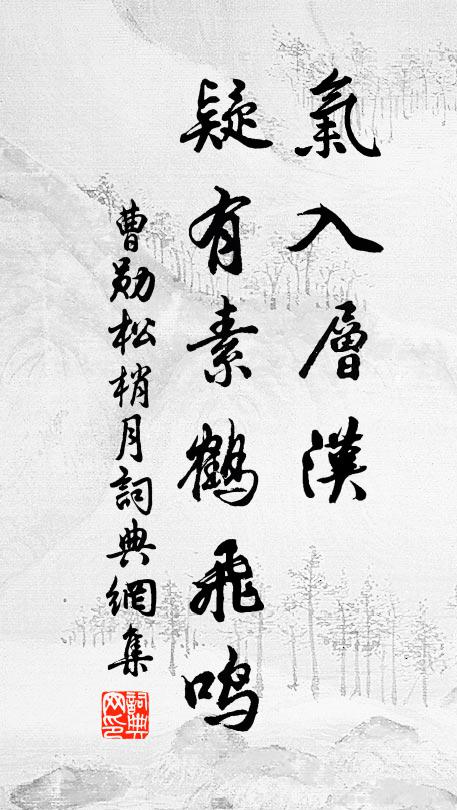 氣入層漢
疑有素鶴飛鳴
曹勛松梢月詞典網集
詞典网印